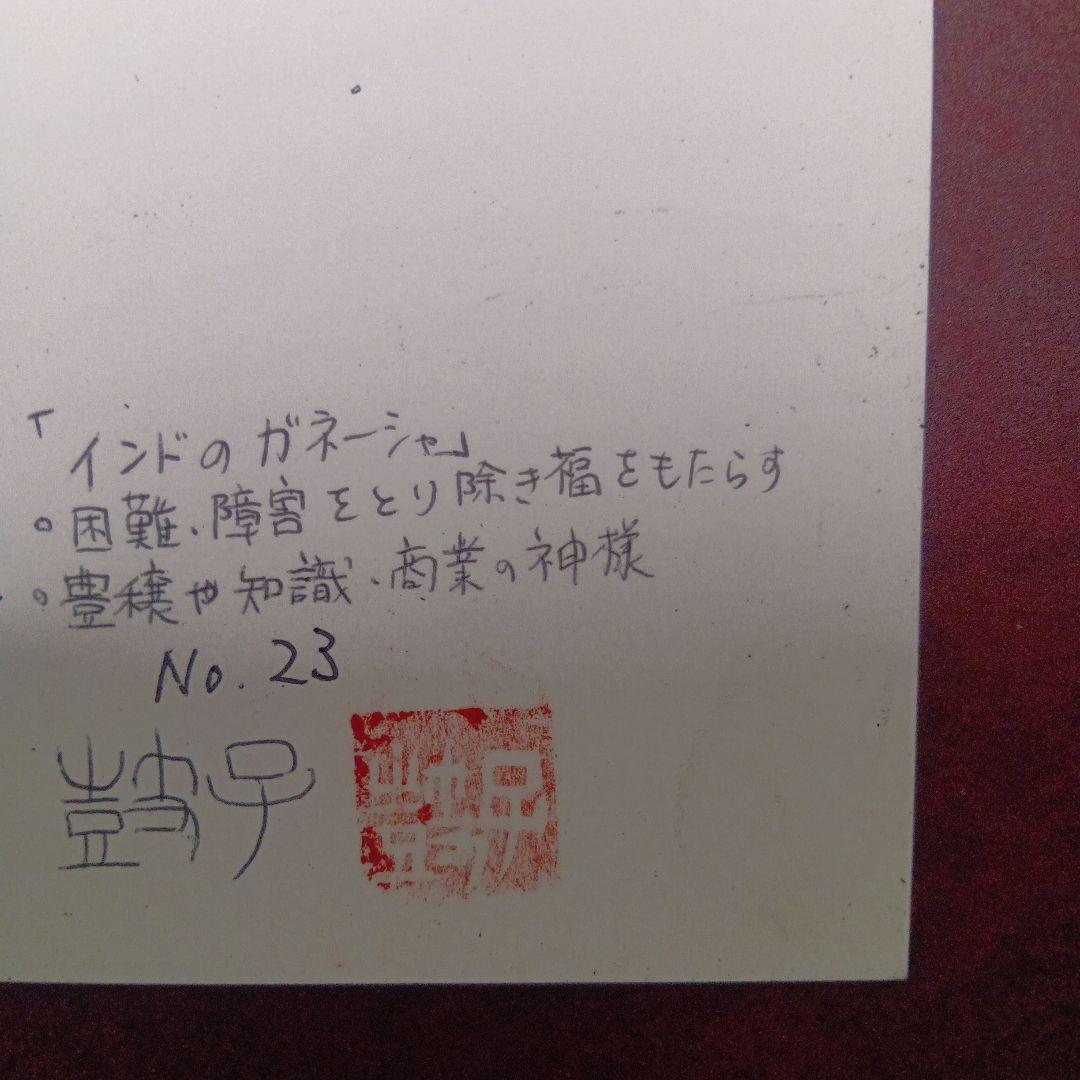 「インドのガネーシャ」
。困難・障害をとり除き福をもたらす
。豊穣や知識・商業の神様
No.23
鼓子